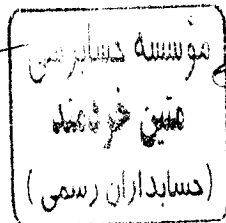 مؤسسه حسابرسی
متین خردمند
(حسابداران رسمی)